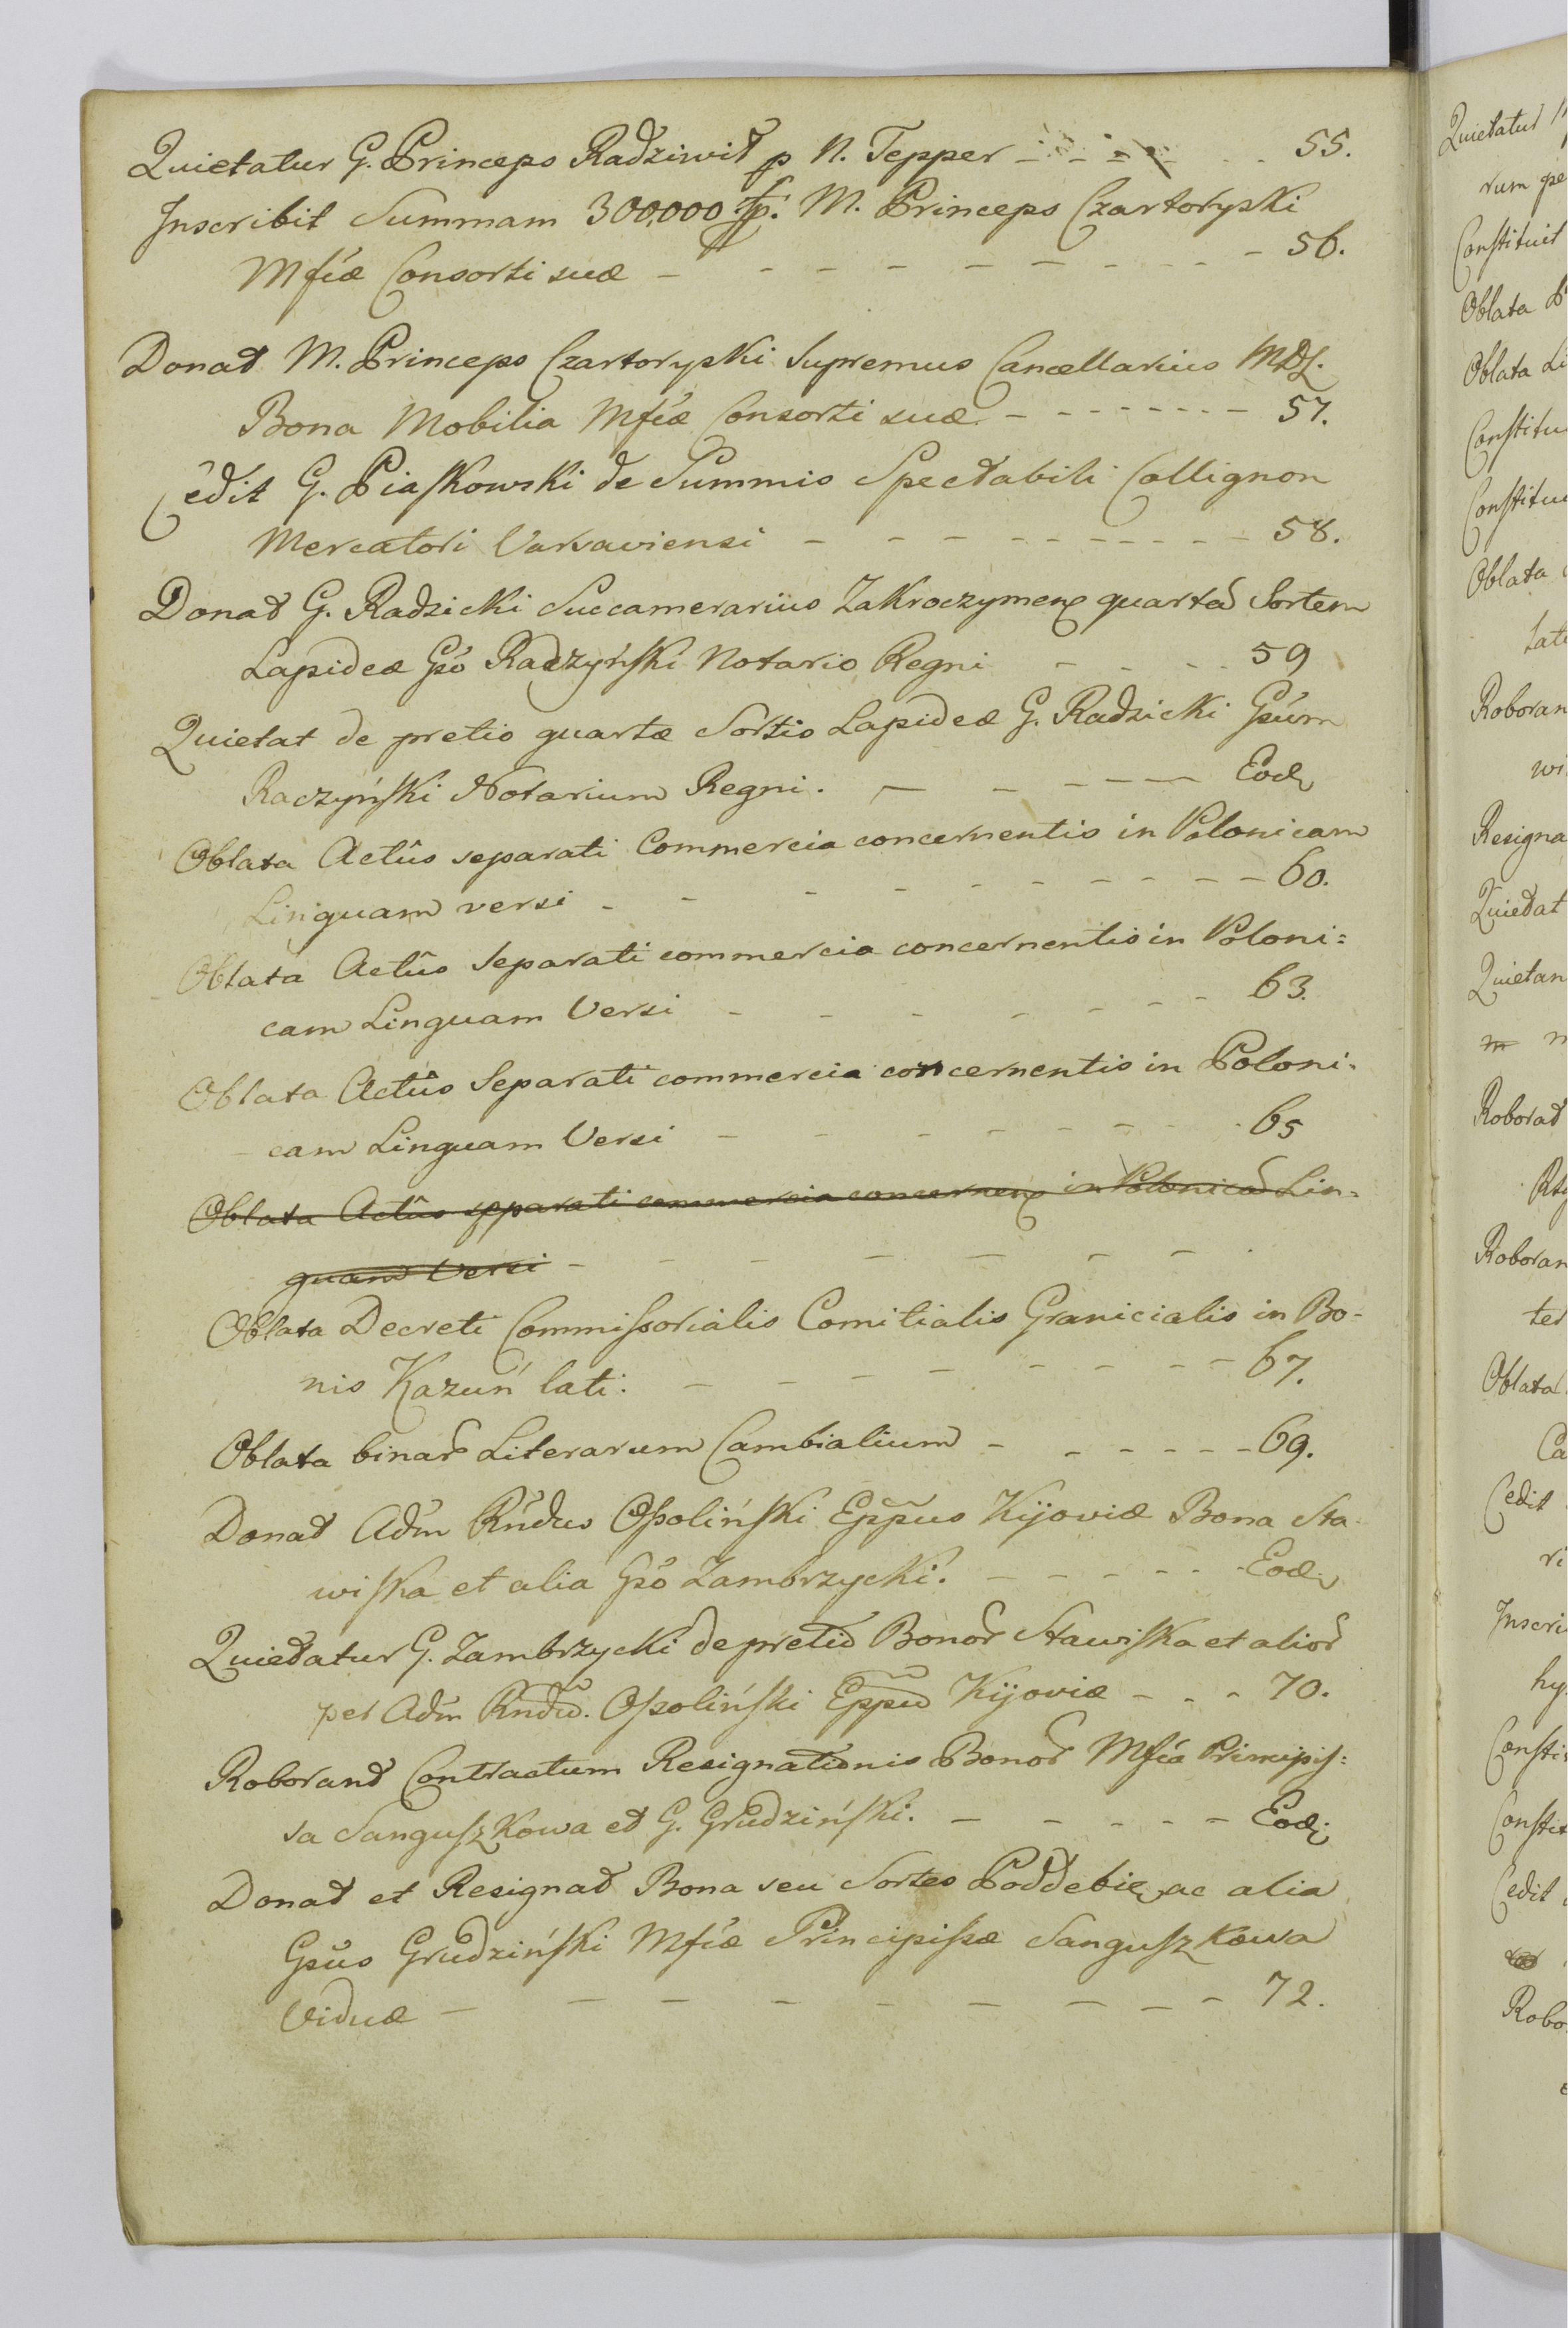 Quietatur G. Princeps Radziwił p N. Tepper - - - - - 55.
Inscribit Summam 300,000 fp. M. Princeps Czartoryski
Mfíæ Consorti suæ - - - - - - - - - - 56.
Donat M. Princeps Czartoryski Supremus Cancellarius MDL.
Bona Mobilia Mfíæ Consorti suæ - - - - - - - - 57.
Cedit G. Piaskowski de Summis Spectabili Collignon
Mercatori Varsaviensi - - - - - - - - - - 58.
Donat G. Radzicki Succamerarius Zakroczymen quartã Sortem
Lapideæ Gsó Radzyński Notario Regni - - - - 59
Quietat de pretio quartæ Sortis Lapideæ G. Radzicki Gsúm
Raczyński Notarium Regni. - - - - - Eod
Oblata Actûs separati Commercia concernentis in Polonicam
Linguam versi - - - - - - - - - - 60.
Oblata Actûs Separati commercia concernentis in Poloni=
cam Linguam Versi - - - - - - - 63.
Oblata Actûs Separati commercia concernentis in Poloni-
cam Linguam Versi - - - - - - - - 65
Oblata Actûs separati commercia concernen in Polonicã Lin-
guam Versi - - - - - - - -
Oblata Decreti Commissorialis Comitialis Granicialis in Bo-
nis Kazuń lati. - - - - - - - - 67.
Oblata binar Literarum Cambialium - - - - - - 69.
Donat Adm Rńdus Ossoliński Eppus Kijoviæ Bona Sta-
wiska et alia Gsó Zambrzycki. - - - - - - Eod
Quietatur G. Zambrzycki de pretio Bonor Stawiska et alior
per Adm Rndũ. Ossoliński Eppũ Kijoviæ - - - 70.
Roborant Contractum Resignationis Bonor Mfía Principis=
sa Sanguszkowa et G. Grudziński. - - - - - Eod.
Donat et Resignat Bona seu Sortes Poddebie ac alia
Gsús Grudziński Mfíæ Principissæ Sanguszkowa
Viduæ - - - - - - - - - 72.
Quietatur
rum pe
Constituit
Oblata
Oblata Li
Constitu
Constitu
Oblata
lati
Roboran
wi
Resigna
Quietat
Quietan
Roborat
Roboran
ter
Oblata
Ca
Cedit
ri
Inscri
hy
Consti
Constit
Cedit
Robo